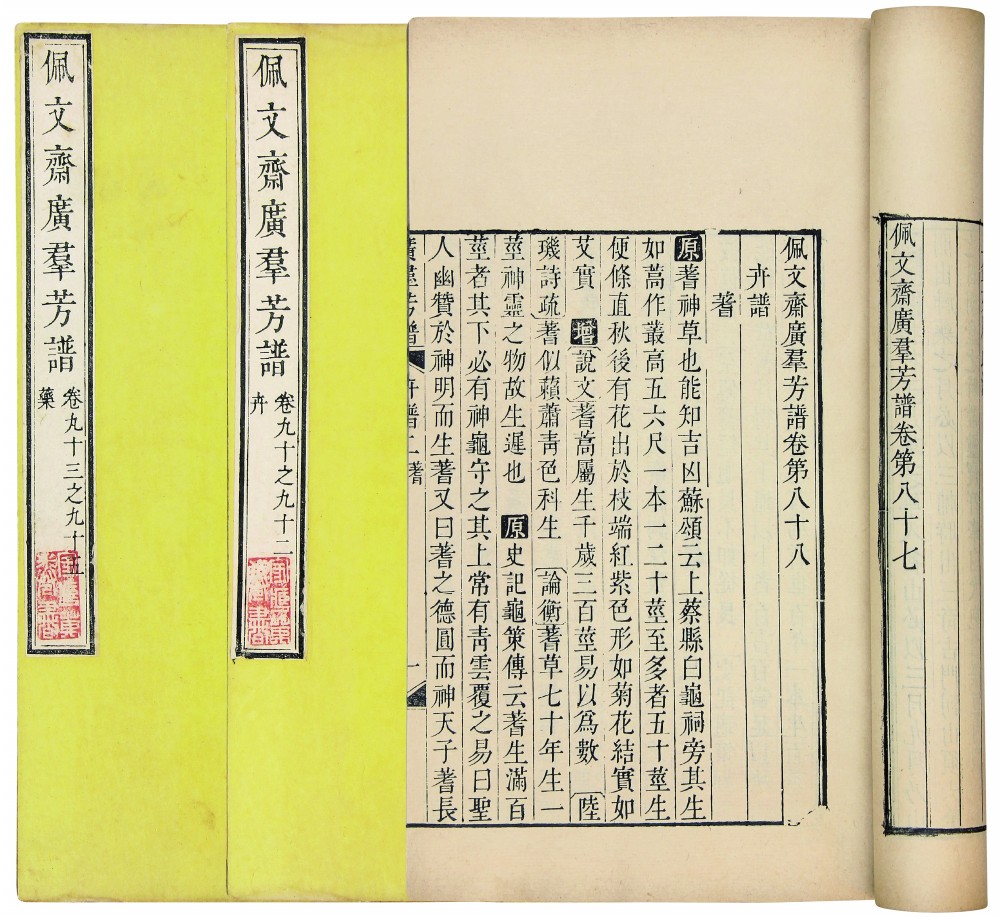 佩文齋廣羣芳譜卷第八十七
佩文齋廣羣芳譜卷第八十八
卉譜
蓍
原蓍神草也能知吉凶蘇頌云上蔡縣白龜祠旁其生
如蒿作叢高五六尺一本一二十莖至多者五十莖生
便條直秋後有花出於枝端紅紫色形如菊花結實如
艾實 增 說文蓍蒿屬生千歲三百莖易以爲數 陸
璣詩疏蓍似藾蕭靑色科生 論衡蓍草七十年生一
莖神靈之物故生遲也 原史記龜策傳云蓍生滿百
莖者其下必有神龜守之其上常有靑雲覆之易曰聖
人幽贊於神明而生蓍又曰蓍之德圓而神天子蓍長
廣羣芳譜 卉譜二蓍 一
佩文齋廣羣芳譜 卷九十之九十二
卉
佩文齋廣羣芳譜 卷九十三之九十五
藥